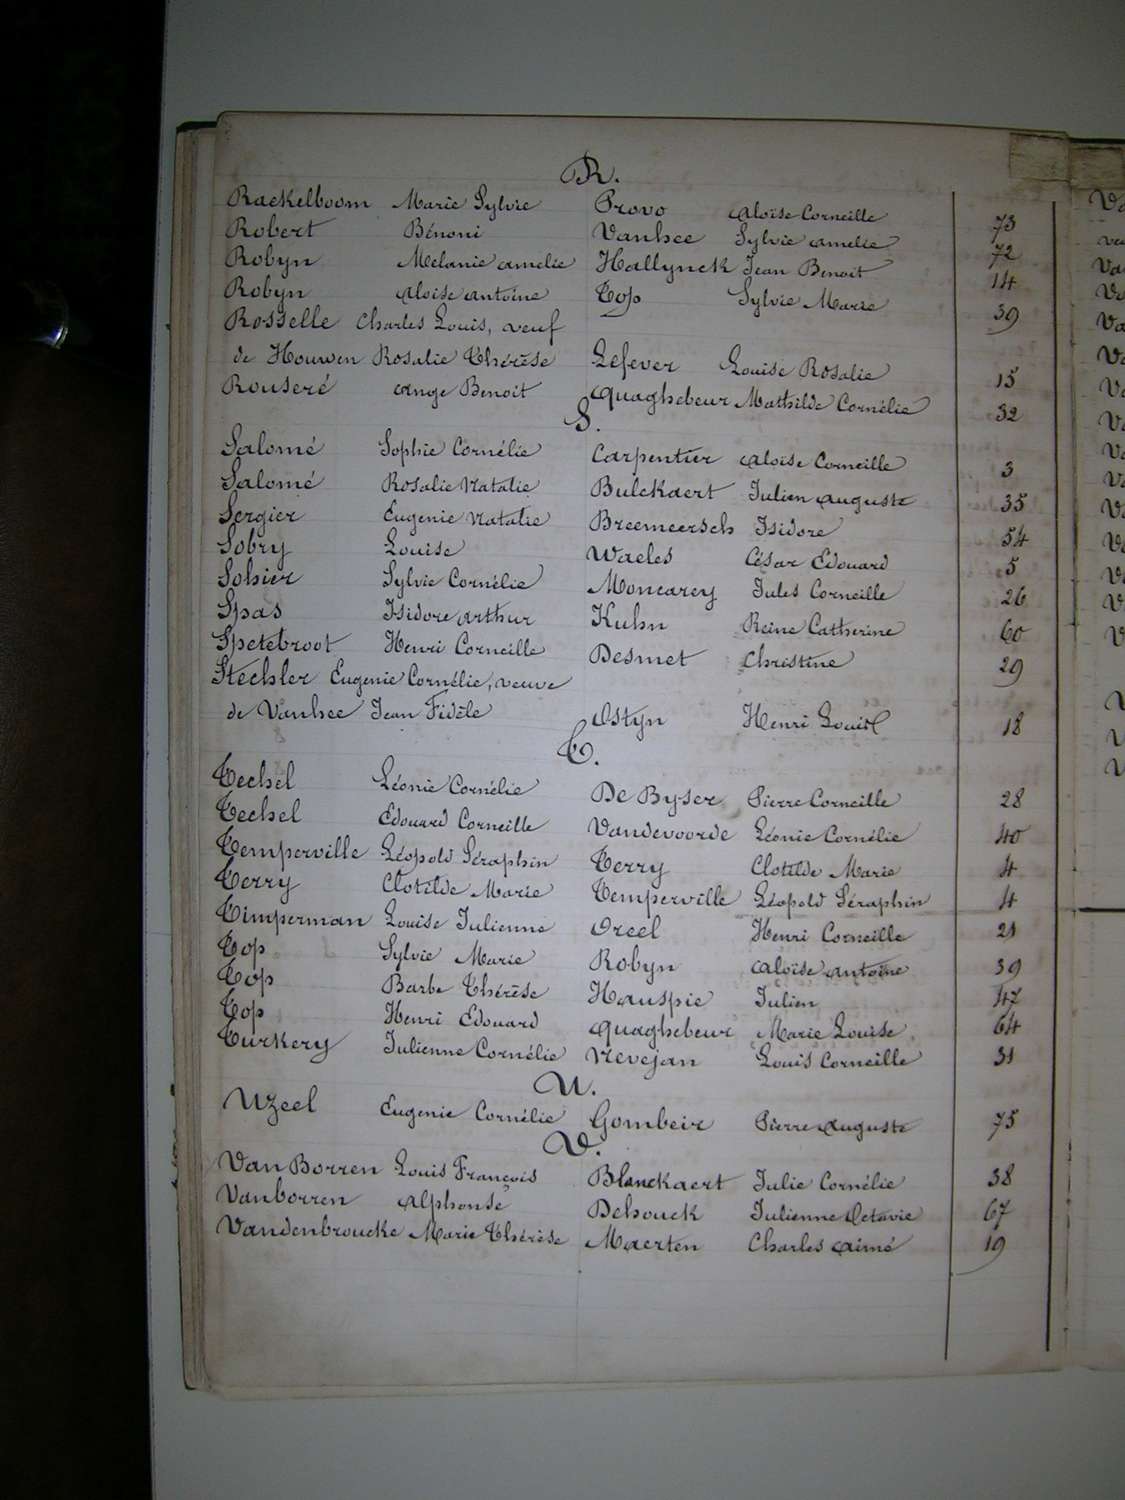 R.
Raekelboom Marie Sylvie Provo Aloïse Corneille 73
Robert Bénoni Vanhee Sylvie Amelie 72
Robyn Melanie Amelie Hallynck Jean Benoit 14
Robyn Aloïse Antoine Top Sylvie Marie 39
Rosselle Charles Louis, veuf
de Houwen Rosalie Thérèse Lefever Louise Rosalie 15
Rouseré Ange Benoit Quaghebeur Mathilde Cornélie 32
S.
Salomé Sophie Cornélie Carpentier Aloïse Corneille 3
Salomé Rosalie Natalie Bulckaert Julien Auguste 35
Sergier Eugenie Natalie Breemeersch Isidore 54
Sobry Louise Waeles César Edouard 5
Sohier Sylvie Cornélie Moncarey Jules Corneille 26
Spas Isidore Arthur Kuhn Reine Catherine 60
Spetebroot Henri Corneille Desmet Christine 29
Stechler Eugenie Cornélie, veuve
de Vanhee Jean Fidèle Ostyn Henri Louis 18
T.
Techel Léonie Cornélie De Byser Pierre Corneille 28
Techel Edouard Corneille Vandevoorde Léonie Cornélie 40
Temperville Léopold Séraphin Terry Clotilde Marie 4
Terry Clotilde Marie Temperville Léopold Séraphin 4
Timperman Louise Julienne Oreel Henri Corneille 21
Top Sylvie Marie Robyn Aloïse Antoine 39
Top Barbe Thérèse Hauspie Julien 47
Top Henri Edouard Quaghebeur Marie Louise 64
Turkery Julienne Cornélie Nevejan Louis Corneille 31
U.
Uzeel Eugenie Cornélie Gombeir Pierre Auguste 75
V.
Van Borren Louis François Blanckaert Julie Cornélie 38
Vanborren Alphonse Dehouck Julienne Octavie 67
Vandenbroucke Marie Thérèse Maerten Charles Aimé 19